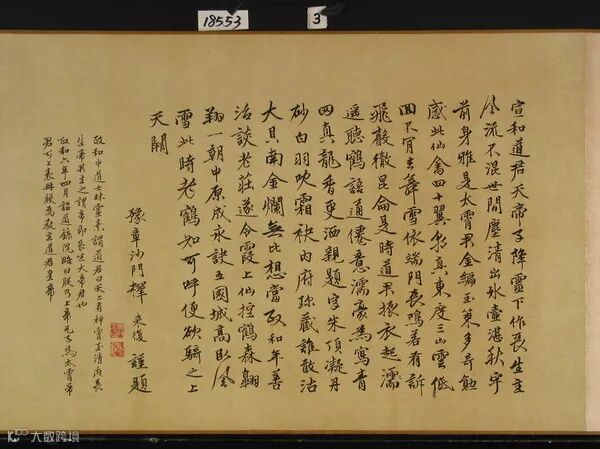 18553
3
宣和道君天帝子降靈下作長生主
風流不混世間塵清出冰壺湛秋宇
前身雅是太霄君金編玉策多奇勳
感此仙禽四十翼朝真東度三山雲低
回不肯去舞雪依端門長鳴若有訴
飛聲徹昆侖是時道君振衣起濡
遥聽鶴語通僊意濡豪為寫青
田真龍香更洒親題字朱頂凝丹
砂白羽吹霜袂内府弥藏誰敢沽
大貝南金爛無比想當政和年善
治談老莊遂令霞上仙控鶴森翱
翔一朝中原成永訣五國城高臥風
雪此時老鶴如可呼便欲騎之上
天闕
豫章沙門 来復 謹題
政和中道士林靈素謂道君曰天上有神霄玉清府長
生帝君主之謂帝即長生大帝君也
政和六年四月詔道籙院略曰朕乃上帝元子為太霄帝
君可上表冊朕為教主道君皇帝
大数跨境